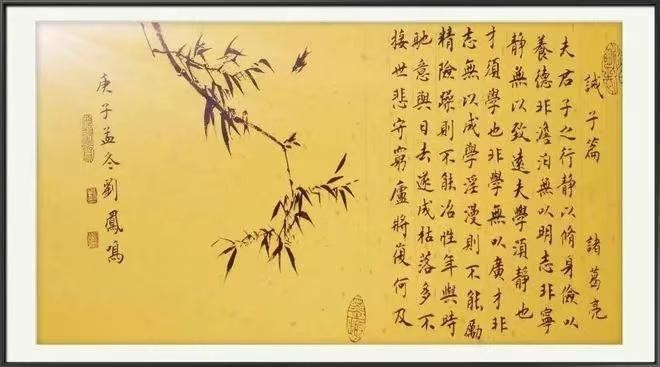 誡子篇 諸葛亮
夫君子之行静以脩身儉以
養德非澹泊無以明志非寧
静無以致遠夫學須静也
才須學也非學無以廣才非
志無以成學淫漫則不能勵
精險躁則不能冶性年與時
馳意與日去遂成枯落多不
接世悲守窮廬將復何及
庚子孟冬劉鳳鳴